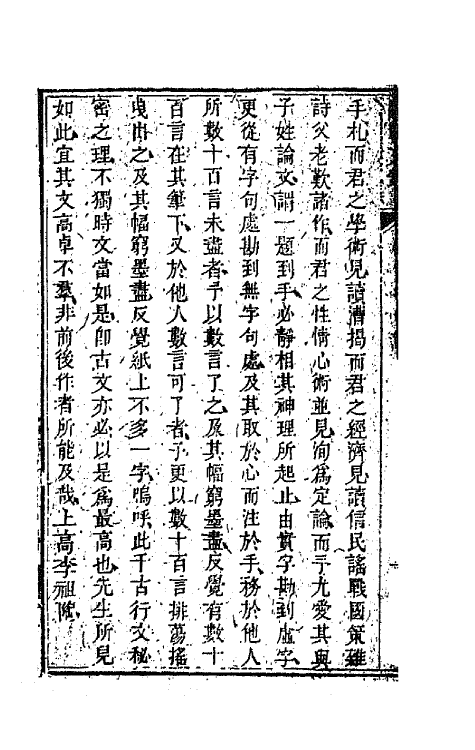 手札而君之學術見讀漕揭而君之經濟見讀信民謠戰國策雜
詩父老歎諸作而君之性情心術並見洵爲定論而予尤愛其與
子姓論文謂一題到手必靜相其神理所起止由實字勘到虛字
更從有字句處勘到無字句處及其取於心而注於手務於他人
所數十百言未盡者予以數言了之及其幅窮墨盡反覺有數十
百言在其筆下又於他人數言可了者予更以數十百言排蕩搖
曳出之及其幅窮墨盡反覺紙上不多一字嗚呼此千古行文秘
密之理不獨時文當如是即古文亦必以是爲最高也先生所見
如此宜其文高卓不羣非前後作者所能及哉上高李祖陶